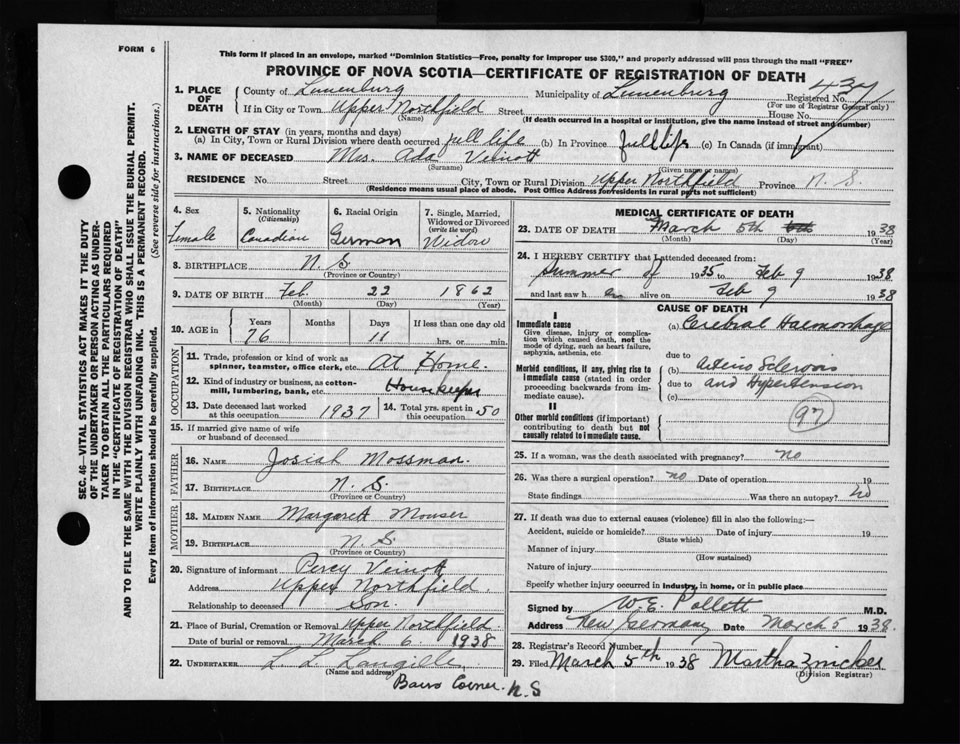 FORM 6
This form if placed in an envelope, marked "Dominion Statistics—Free, penalty for improper use $300," and properly addressed will pass through the mail "FREE"
PROVINCE OF NOVA SCOTIA—CERTIFICATE OF REGISTRATION OF DEATH
1. PLACE OF DEATH
County of Lunenburg Municipality of Lunenburg Registered No. 437
(For use of Registrar General only)
If in City or Town Upper Northfield Street House No.
(Name) (If death occurred in a hospital or institution, give the name instead of street and number)
2. LENGTH OF STAY (in years, months and days)
(a) In City, Town or Rural Division where death occurred full life (b) In Province full life (c) In Canada (if immigrant)
3. NAME OF DECEASED Mrs. Ada Veinott
(Surname) (Given name or names)
RESIDENCE No. Street City, Town or Rural Division Upper Northfield Province N. S.
(Residence means usual place of abode. Post Office Address for residents in rural parts not sufficient)
4. Sex Female
5. Nationality (Citizenship) Canadian
6. Racial Origin German
7. Single, Married, Widowed or Divorced (write the word) Widow
8. BIRTHPLACE N. S
(Province or Country)
9. DATE OF BIRTH Feb. 22 1862
(Month) (Day) (Year)
10. AGE in Years Months Days If less than one day old
76 11 hrs. or min.
OCCUPATION
11. Trade, profession or kind of work as spinner, teamster, office clerk, etc. At Home.
12. Kind of industry or business, as cotton-mill, lumbering, bank, etc. Housekeeper
13. Date deceased last worked at this occupation 1937
14. Total yrs. spent in this occupation 50
15. If married give name of wife or husband of deceased
FATHER
16. NAME Josiah Mossman.
17. BIRTHPLACE N. S.
(Province or Country)
MOTHER
18. MAIDEN NAME Margaret Mouser
19. BIRTHPLACE N. S.
(Province or Country)
20. Signature of informant Percy Veinott
Address Upper Northfield.
Relationship to deceased Son.
21. Place of Burial, Cremation or Removal Upper Northfield
Date of burial or removal March 6 1938
22. UNDERTAKER L. L. Langille
(Name and address)
Barss Corner. N. S
MEDICAL CERTIFICATE OF DEATH
23. DATE OF DEATH March 5th 1938
(Month) (Day) (Year)
24. I HEREBY CERTIFY that I attended deceased from:
Summer of 1935 to Feb 9 1938
and last saw h er alive on Feb 9 1938
CAUSE OF DEATH
I
Immediate cause
Give disease, injury or complication which caused death, not the mode of dying, such as heart failure, asphyxia, asthenia, etc
(a) Cerebral Haemorrhage
due to
Morbid conditions, if any, giving rise to immediate cause (stated in order proceeding backwards from immediate cause).
(b) Arterio Sclerosis
due to and Hypertension
(c)
97
II
Other morbid conditions (if important) contributing to death but not causally related to immediate cause.
25. If a woman, was the death associated with pregnancy? no
26. Was there a surgical operation? no Date of operation 19
State findings Was there an autopsy? no
27. If death was due to external causes (violence) fill in also the following:—
Accident, suicide or homicide? Date of injury 19
(State which)
Manner of injury
(How sustained)
Nature of injury
Specify whether injury occurred in industry, in home, or in public place
Signed by W. E. Pollett M.D.
Address New Germany Date March 5 1938.
28. Registrar's Record Number
29. Filed March 5th 1938 Martha Zwicker
(Division Registrar)
SEC. 46—VITAL STATISTICS ACT MAKES IT THE DUTY
OF THE UNDERTAKER OR PERSON ACTING AS UNDERTAKER TO OBTAIN ALL THE PARTICULARS REQUIRED
IN THE "CERTIFICATE OF REGISTRATION OF DEATH"
AND TO FILE THE SAME WITH THE DIVISION REGISTRAR WHO SHALL ISSUE THE BURIAL PERMIT.
WRITE PLAINLY WITH UNFADING INK. THIS IS A PERMANENT RECORD.
Every item of information should be carefully supplied. (See reverse side for instructions.)